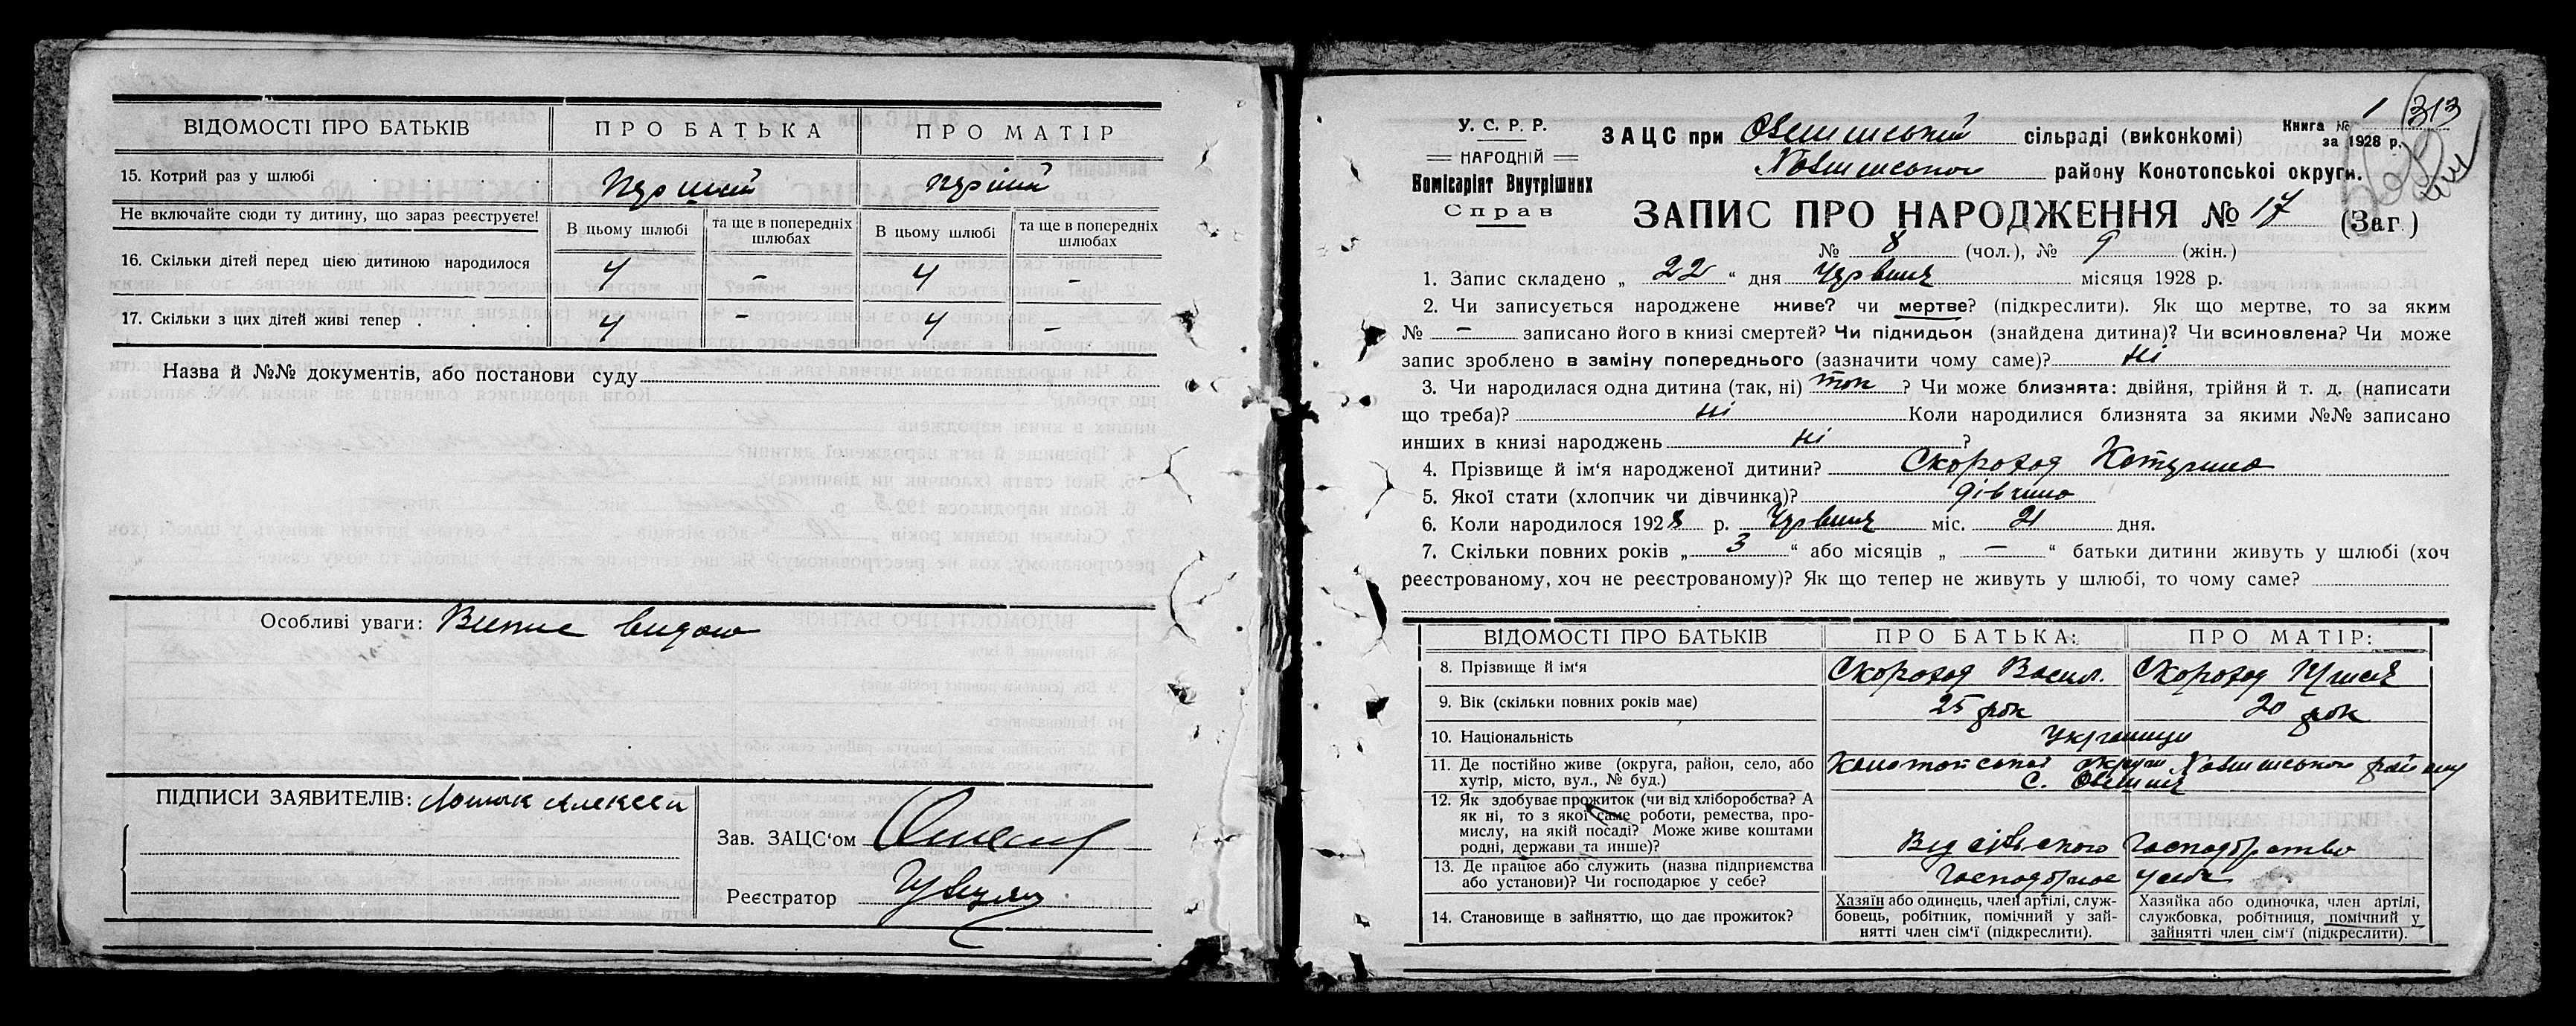 ВІДОМОСТІ ПРО БАТЬКІВ ПРО БАТЬКА ПРО МАТІР
15. Котрий раз у шлюбі перший перший
Не включайте сюди ту дитину, що зараз реєструєте! В цьому шлюбі та ще в попередніх шлюбах В цьому шлюбі та ще в попередніх шлюбах
16. Скільки дітей перед цією дитиною народилося 4 - 4 -
17. Скільки з цих дітей живі тепер 4 - 4 -
Назва й №№ документів, або постанови суду
Особливі уваги: Випис видано
ПІДПИСИ ЗАЯВИТЕЛІВ:
Зав. ЗАЦС'ом
Реєстратор
У. С. Р. Р.
НАРОДНІЙ
Комісаріят Внутрішних
Справ
Книга № 1 313
за 1928 р.
ЗАЦС при сільраді (виконкомі)
району Конотопської округи.
ЗАПИС ПРО НАРОДЖЕННЯ № 17 (Заг.)
№ 8 (чол.), № 9 (жін.)
1. Запис складено „ 22 " дня Червня місяця 1928 р.
2. Чи записується народжене живе? чи мертве? (підкреслити). Як що мертве, то за яким
№ - записано його в книзі смертей? Чи підкидьок (знайдена дитина)? Чи всиновлена? Чи може
запис зроблено в заміну попереднього (зазначити чому саме)? Ні
3. Чи народилася одна дитина (так, ні) так ? Чи може близнята: двійня, трійня й т. д. (написати
що треба)? Ні Коли народилися близнята за якими №№ записано
инших в книзі народжень Ні ?
4. Прізвище й ім'я народженої дитини? Скороход Катерина
5. Якої стати (хлопчик чи дівчинка)? дівчина
6. Коли народилося 1928 р. Червня міс. 21 дня.
7. Скільки повних років „ 3 " або місяців „ — " батьки дитини живуть у шлюбі (хоч
реєстрованому, хоч не реєстрованому)? Як що тепер не живуть у шлюбі, то чому саме?
ВІДОМОСТІ ПРО БАТЬКІВ ПРО БАТЬКА: ПРО МАТІР:
8. Прізвище й ім'я Скороход Васил. Скороход
9. Вік (скільки повних років має) 25 рок 20 рок
10. Національність Українци
11. Де постійно живе (округа, район, село, або хутір, місто, вул., № буд.) Конотопської округи району с.
12. Як здобуває прожиток (чи від хліборобства? А як ні, то з якої саме роботи, ремества, промислу, на якій посаді? Може живе коштами родні, держави та инше)? Від сільського Господарство
13. Де працює або служить (назва підприємства або установи)? Чи господарює у себе? Господарює у себе
14. Становище в зайняттю, що дає прожиток? Хазяїн або одинець, член артілі, службовець, робітник, помічний у зайнятті член сім'ї (підкреслити). Хазяйка або одиночка, член артілі, службовка, робітниця, помічний у зайнятті член сім'ї (підкреслити).